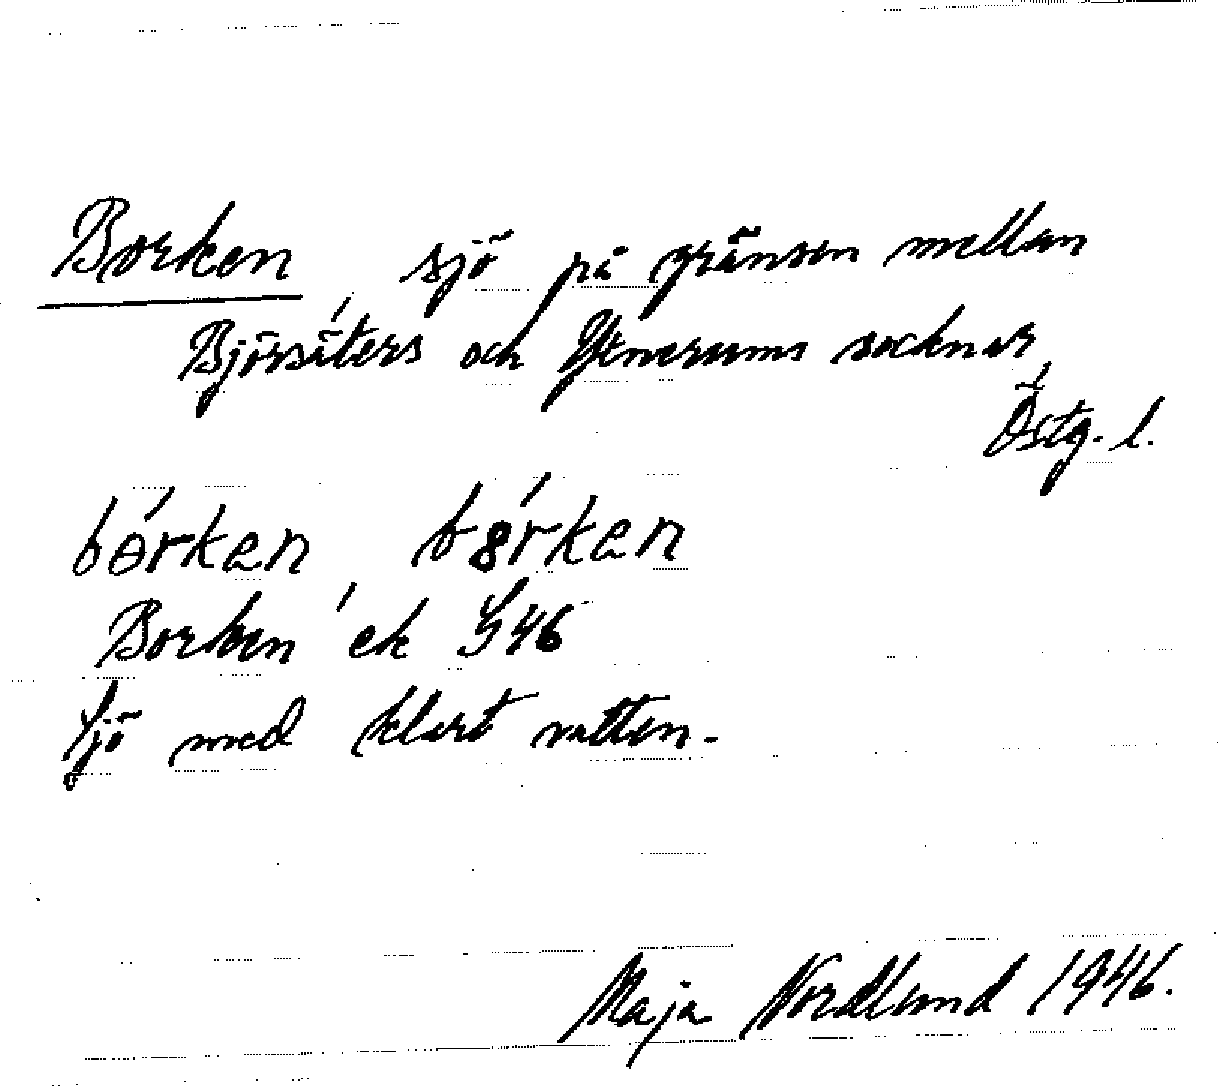 Borken sjö på gränsen mellan
Björsäters och Yxnerums socknar
Östg. l.
bórken
Borken ek S46
Sjö med klart vatten.
Maja Nordlund 1946.